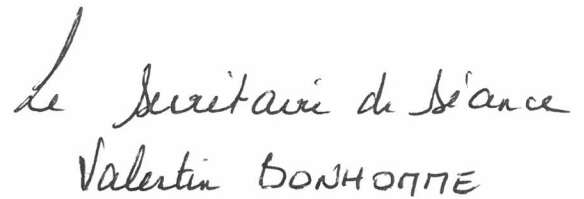 Le Secrétaire de Séance
Valentin BONHOMME